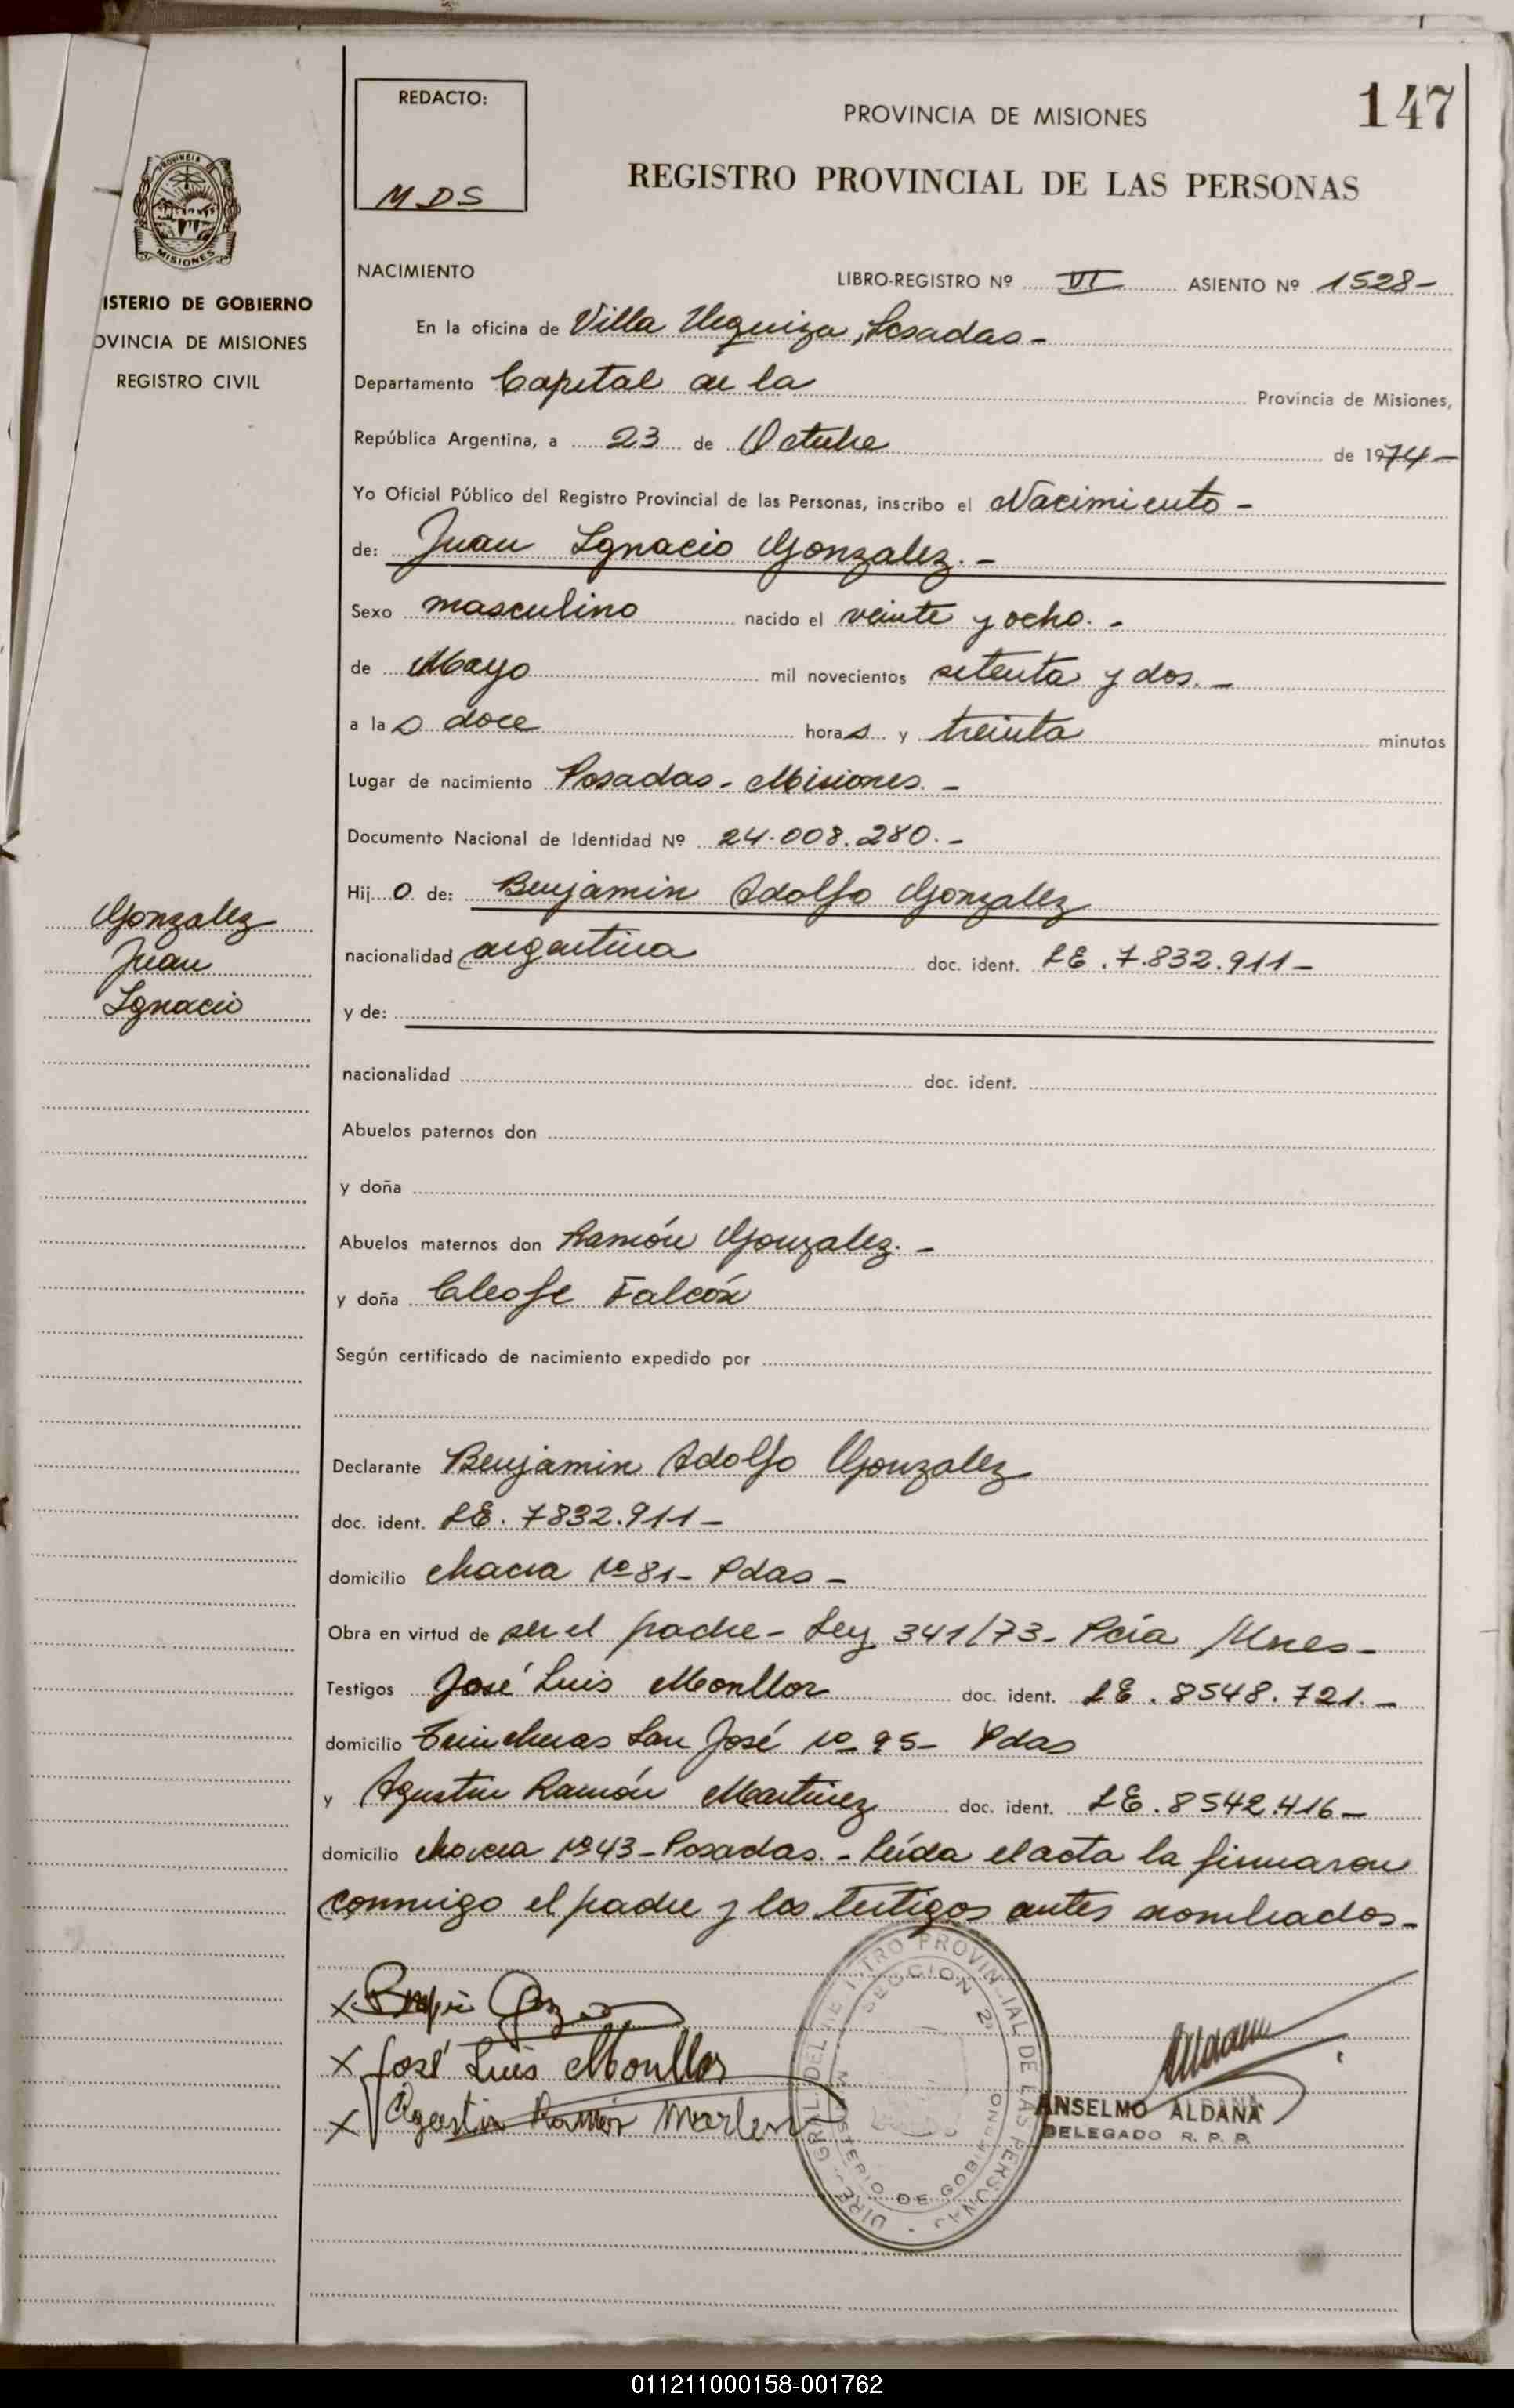 REDACTO:
MDS
PROVINCIA DE MISIONES
147
REGISTRO PROVINCIAL DE LAS PERSONAS
PROVINCIA
MISIONES
ISTERIO DE GOBIERNO
OVINCIA DE MISIONES
REGISTRO CIVIL
NACIMIENTO LIBRO-REGISTRO Nº VI ASIENTO Nº 1528-
En la oficina de Villa Urquiza, Posadas-
Departamento Capital de la Provincia de Misiones,
República Argentina, a 23 de Octubre de 1974-
Yo Oficial Público del Registro Provincial de las Personas, inscribo el Nacimiento-
de: Juan Ignacio Gonzalez.-
Sexo masculino nacido el veinte y ocho.-
de Mayo mil novecientos setenta y dos.-
a las doce horas y treinta minutos
Lugar de nacimiento Posadas- Misiones.-
Documento Nacional de Identidad Nº 24.008.280.-
Hijo de: Benjamin Adolfo Gonzalez
nacionalidad argentina doc. ident. LE. 7.832.911-
y de:
nacionalidad doc. ident.
Abuelos paternos don
y doña
Abuelos maternos don Ramón Gonzalez.-
y doña Cleofe Falcón
Según certificado de nacimiento expedido por
Declarante Benjamin Adolfo Gonzalez
doc. ident. LE. 7832.911-
domicilio chacra Nº 81- Pdas-
Obra en virtud de ser el padre- Ley 341/73- Pcia Mnes-
Testigos José Luis Monllor doc. ident. LE. 8548.721.-
domicilio Trincheras San José Nº 95- Pdas
y Agustin Ramón Martinez doc. ident. LE. 8542.416-
domicilio chacra Nº 43- Posadas.- Leída el acta la firmaron
conmigo el padre y los testigos antes nombrados-
Gonzalez
Juan
Ignacio
x
x José Luis Monllor
x Agustin Ramón
DIRE. GRAL. DEL REGISTRO PROVINCIAL DE LAS PERSONAS
SECCION 2ª
MINISTERIO DE GOBIERNO
Aldana
ANSELMO ALDANA
DELEGADO R. P. P.
011211000158-001762